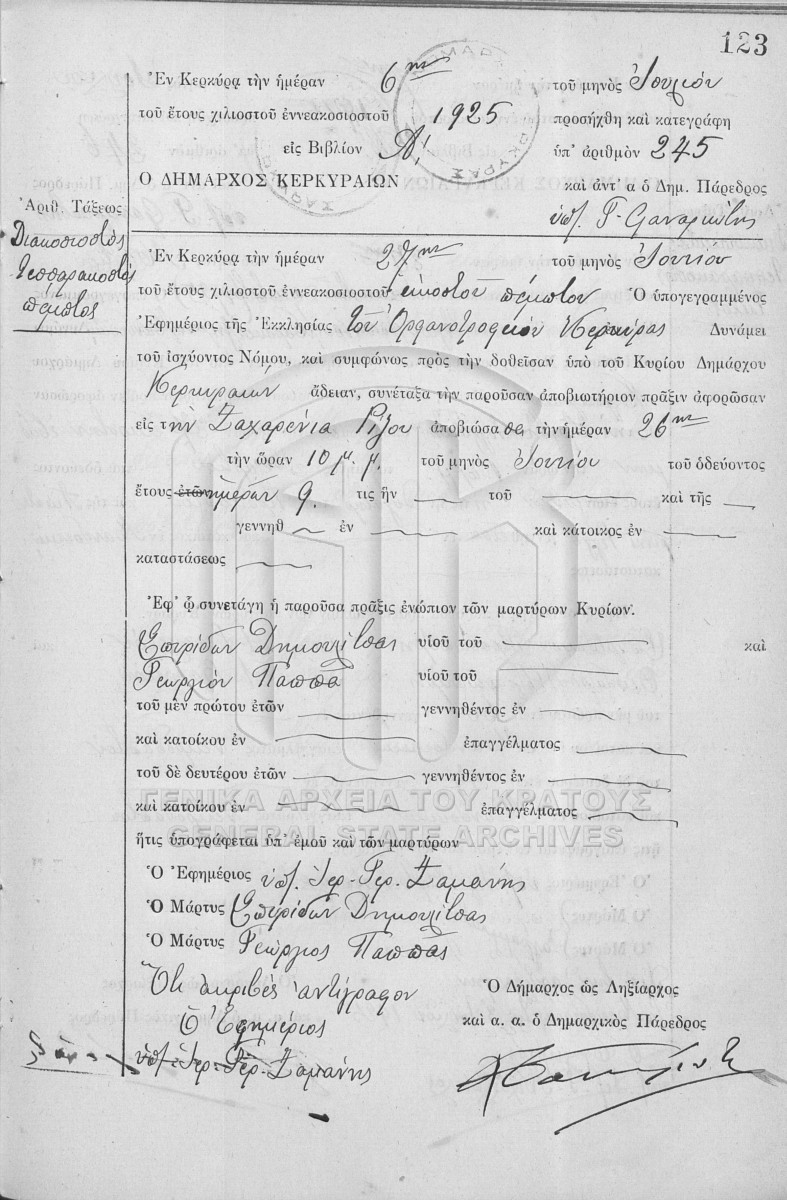 123
Ἐν Κερκύρᾳ τὴν ἡμέραν 6ην τοῦ μηνὸς Ἰουλίου
τοῦ ἔτους χιλιοστοῦ ἐννεακοσιοστοῦ 1925 προσήχθη καὶ κατεγράφη
εἰς Βιβλίον Α! ὑπ' ἀριθμὸν 245
Ο ΔΗΜΑΡΧΟΣ ΚΕΡΚΥΡΑΙΩΝ καὶ ἀντ' α ὁ Δημ. Πάρεδρος
ὑπ. Γ.
Ἀριθ. Τάξεως
Διακοσιοστὸς
τεσσαρακοστὸς
πέμπτος
Ἐν Κερκύρᾳ τὴν ἡμέραν 27ην τοῦ μηνὸς Ἰουνίου
τοῦ ἔτους χιλιοστοῦ ἐννεακοσιοστοῦ εἰκοστοῦ πέμπτου Ὁ ὑπογεγραμμένος
Ἐφημέριος τῆς Ἐκκλησίας τοῦ Ὀρφανοτροφείου Κερκύρας Δυνάμει
τοῦ ἰσχύοντος Νόμου, καὶ συμφώνως πρὸς τὴν δοθεῖσαν ὑπὸ τοῦ Κυρίου Δημάρχου
Κερκυραίων ἄδειαν, συνέταξα τὴν παροῦσαν ἀποβιωτήριον πρᾶξιν ἀφορῶσαν
εἰς τὴν Ζαχαρένια Ρίζου ἀποβιώσασα τὴν ἡμέραν 26ην
τὴν ὥραν 10 μ.μ. τοῦ μηνὸς Ἰουνίου τοῦ ὁδεύοντος
ἔτους ἐτῶν ἡμερῶν 9. τις ἦν τοῦ καὶ τῆς
γεννηθ ἐν καὶ κάτοικος ἐν
καταστάσεως
Ἐφ' ᾧ συνετάγη ἡ παροῦσα πρᾶξις ἐνώπιον τῶν μαρτύρων Κυρίων.
Σπυρίδων Δημουλίτσας υἱοῦ τοῦ καὶ
Γεωργίου Παππᾶ υἱοῦ τοῦ
τοῦ μὲν πρώτου ἐτῶν γεννηθέντος ἐν
καὶ κατοίκου ἐν ἐπαγγέλματος
τοῦ δὲ δευτέρου ἐτῶν γεννηθέντος ἐν
ΓΕΝΙΚΑ ΑΡΧΕΙΑ ΤΟΥ ΚΡΑΤΟΥΣ
καὶ κατοίκου ἐν ἐπαγγέλματος
GENERAL STATE ARCHIVES
ἥτις ὑπογράφεται ὑπ' ἐμοῦ καὶ τῶν μαρτύρων
Ὁ Ἐφημέριος ὑπ. Ἱερ. Γερ. Σαμάνης
Ὁ Μάρτυς Σπυρίδων Δημουλίτσας
Ὁ Μάρτυς Γεώργιος Παππᾶς
Ὅτι ἀκριβὲς ἀντίγραφον Ὁ Δήμαρχος ὡς Ληξίαρχος
Ὁ Ἐφημέριος καὶ α. α. ὁ Δημαρχικὸς Πάρεδρος
ὑπ. Ἱερ. Γερ. Σαμάνης